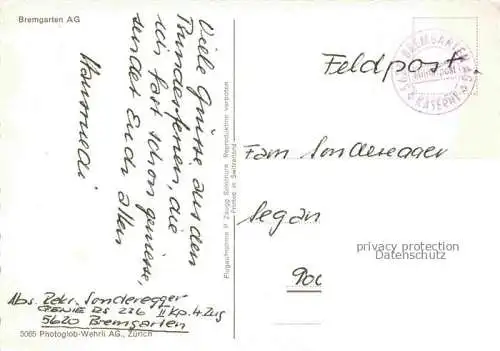 Bremgarten AG
Viele Grüsse aus den
Bundesferien, die
ich fast schon geniesse,
sendet Euch allen
Hansruedi
Abs. Rekr. Sonderegger
GENIE RS 236 II Kp. 4. Zug
5620 Bremgarten
3065 Photoglob-Wehrli AG., Zürich
Flugaufnahme P. Zaugg Solothurn, Reproduktion verboten
Printed in Switzerland
BREMGARTEN
Militärpost
KASERNE
Feldpost.
Fam Sonderegger
privacy protection
Datenschutz